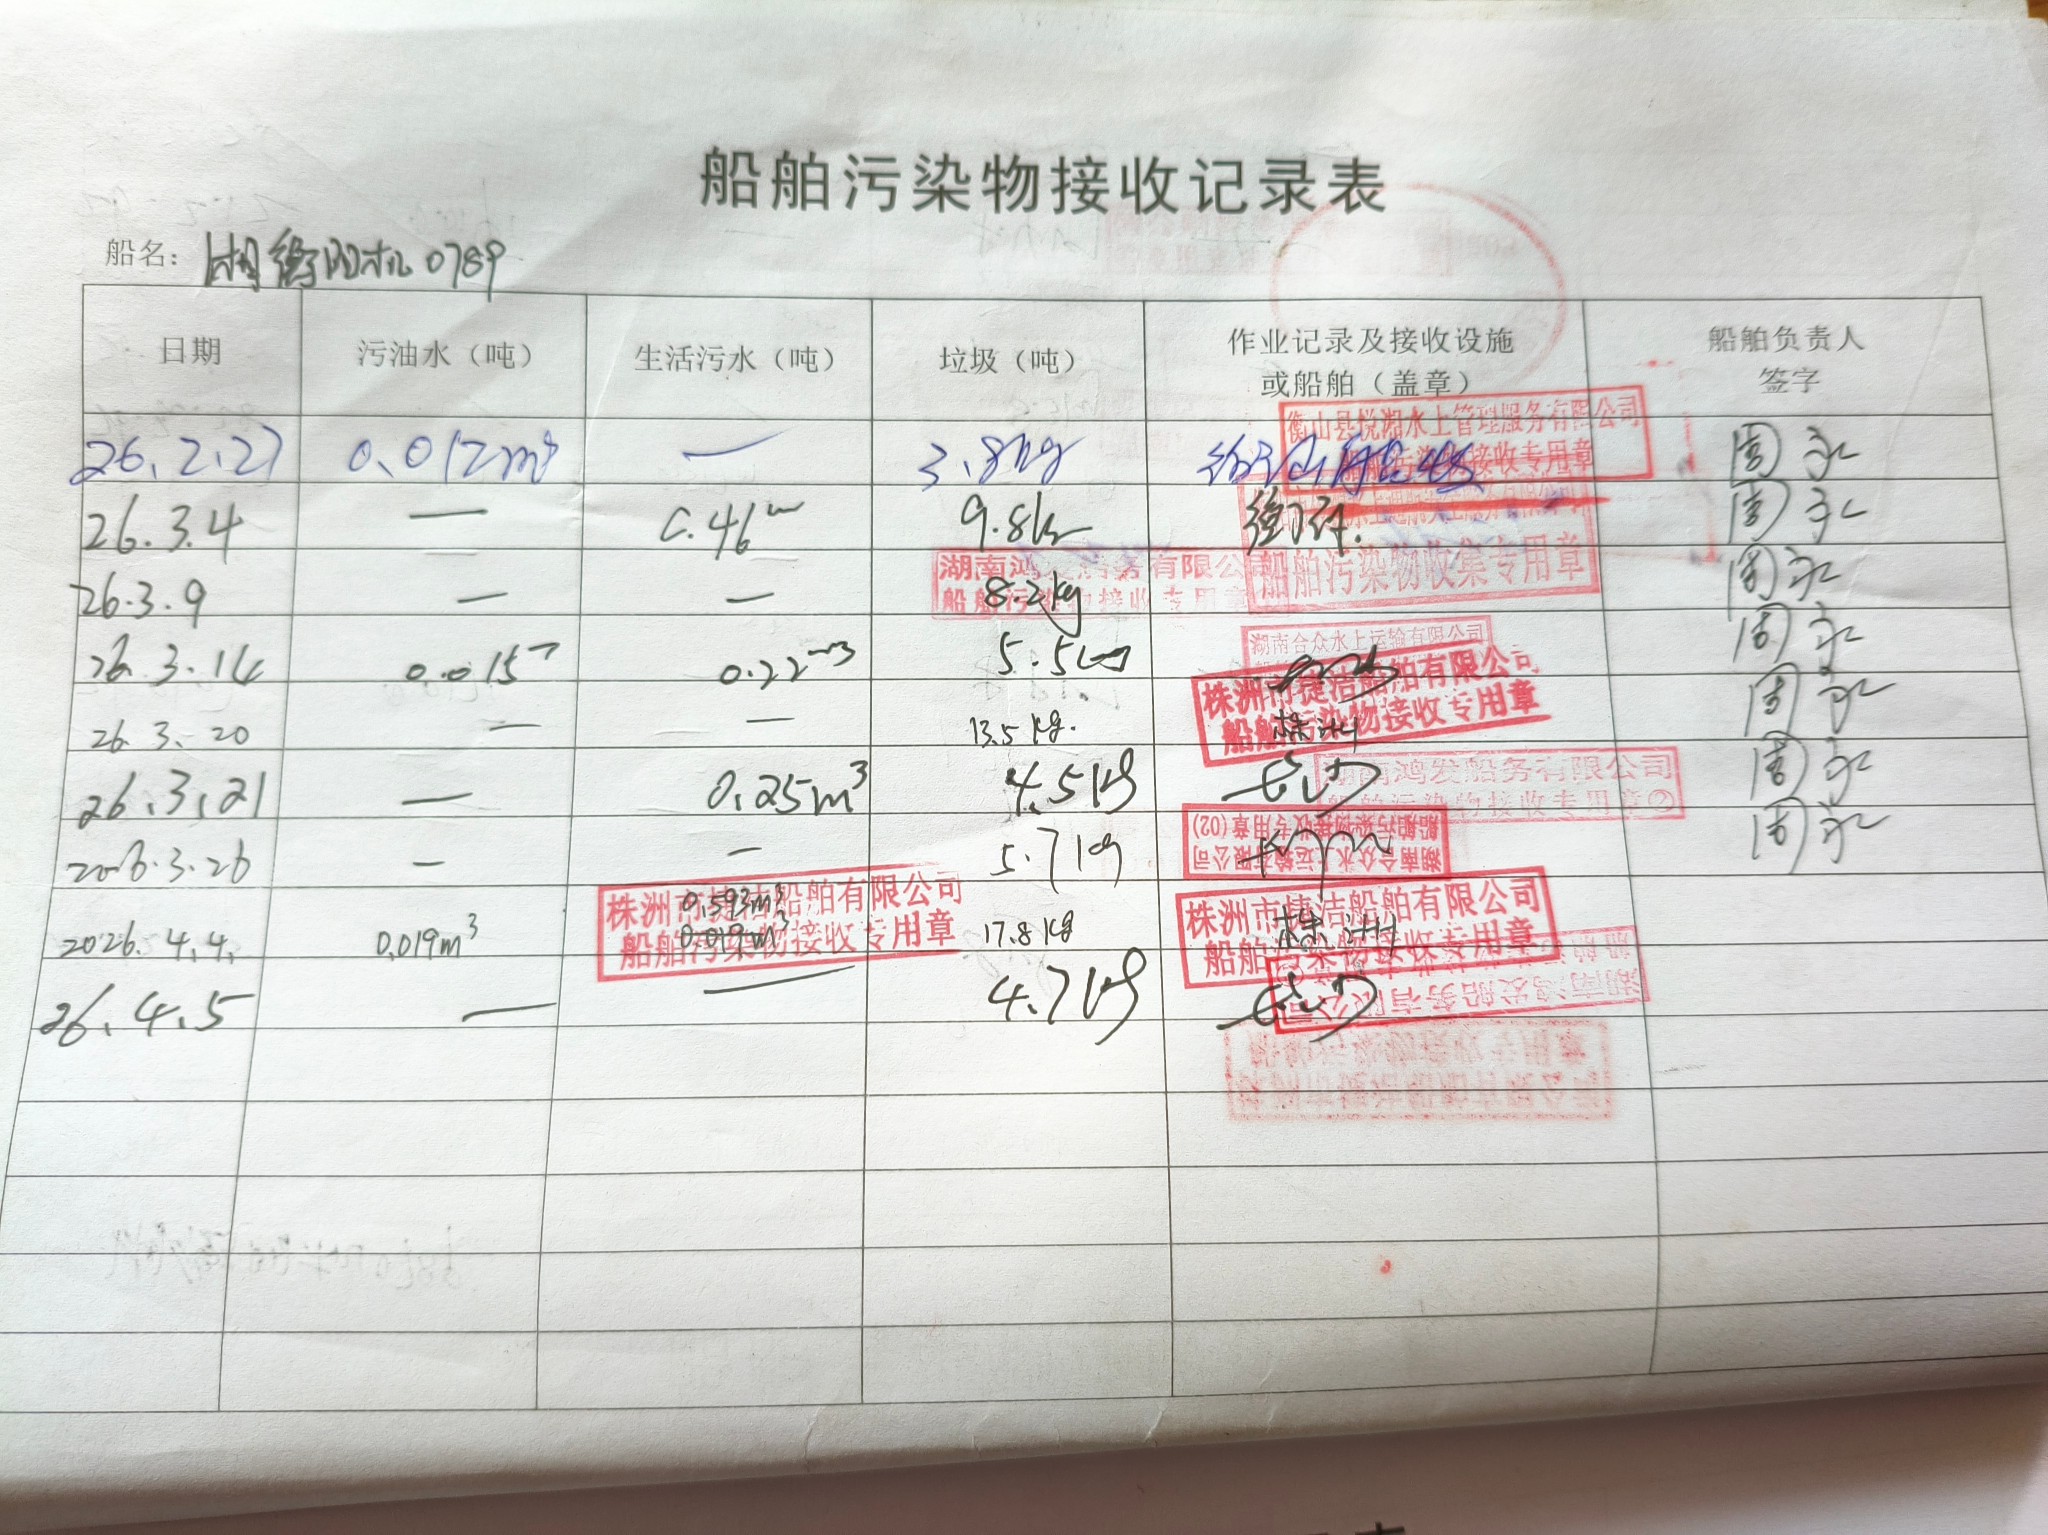 船舶污染物接收记录表
船名: 湘衡阳机0789
日期 污油水（吨） 生活污水（吨） 垃圾（吨） 作业记录及接收设施或船舶（盖章） 船舶负责人签字
26.2.27 0.012m³ — 3.8kg 周永
衡山县悦湘水上管理服务有限公司
接收专用章
26.3.4 — 0.46 9.8k 周永
船舶污染物收集专用章
26.3.9 — — 8.2kg 周永
湖南鸿发船务有限公司
船舶污染物接收专用章
26.3.14 0.015 0.22m³ 5.5 周永
湖南合众水上运输有限公司
26.3.20 — — 13.5kg. 株洲 周永
株洲市捷洁船舶有限公司
船舶污染物接收专用章
26.3.21 — 0.25m³ 4.5kg 长沙 周永
湖南鸿发船务有限公司
船舶污染物接收专用章②
2026.3.26 — — 5.7kg 周永
湖南合众水上运输有限公司
船舶污染物接收专用章(02)
2026.4.4. 0.019m³ 0.593m³ 17.8kg 株洲
0.019m³
株洲市捷洁船舶有限公司
船舶污染物接收专用章
株洲市捷洁船舶有限公司
船舶污染物接收专用章
26.4.5 — — 4.7kg 长沙
湖南鸿发船务有限公司